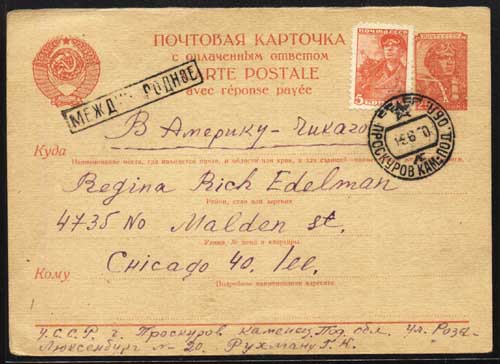 ПОЧТОВАЯ КАРТОЧКА
с оплаченным ответом
CARTE POSTALE
avec réponse payée
МЕЖДУНАРОДНОЕ
5
КОП
ПОЧТА СССР
ПРОСКУРОВ КАМ-ПОД. ОБЛ.
В Америку - Чикаго
Куда
Наименование места, где находится почта, и области или края, а для станций
Regina Rich Edelman
Район, село или деревня
4735 No Malden st.
Улица, № дома и квартиры
Кому
Chicago 40. Ill.
Подробное наименование адресата
У.С.С.Р. г. Проскуров Каменец Под. обл. ул. Розы
Люксенбург № 20. Рухману Г. Н.